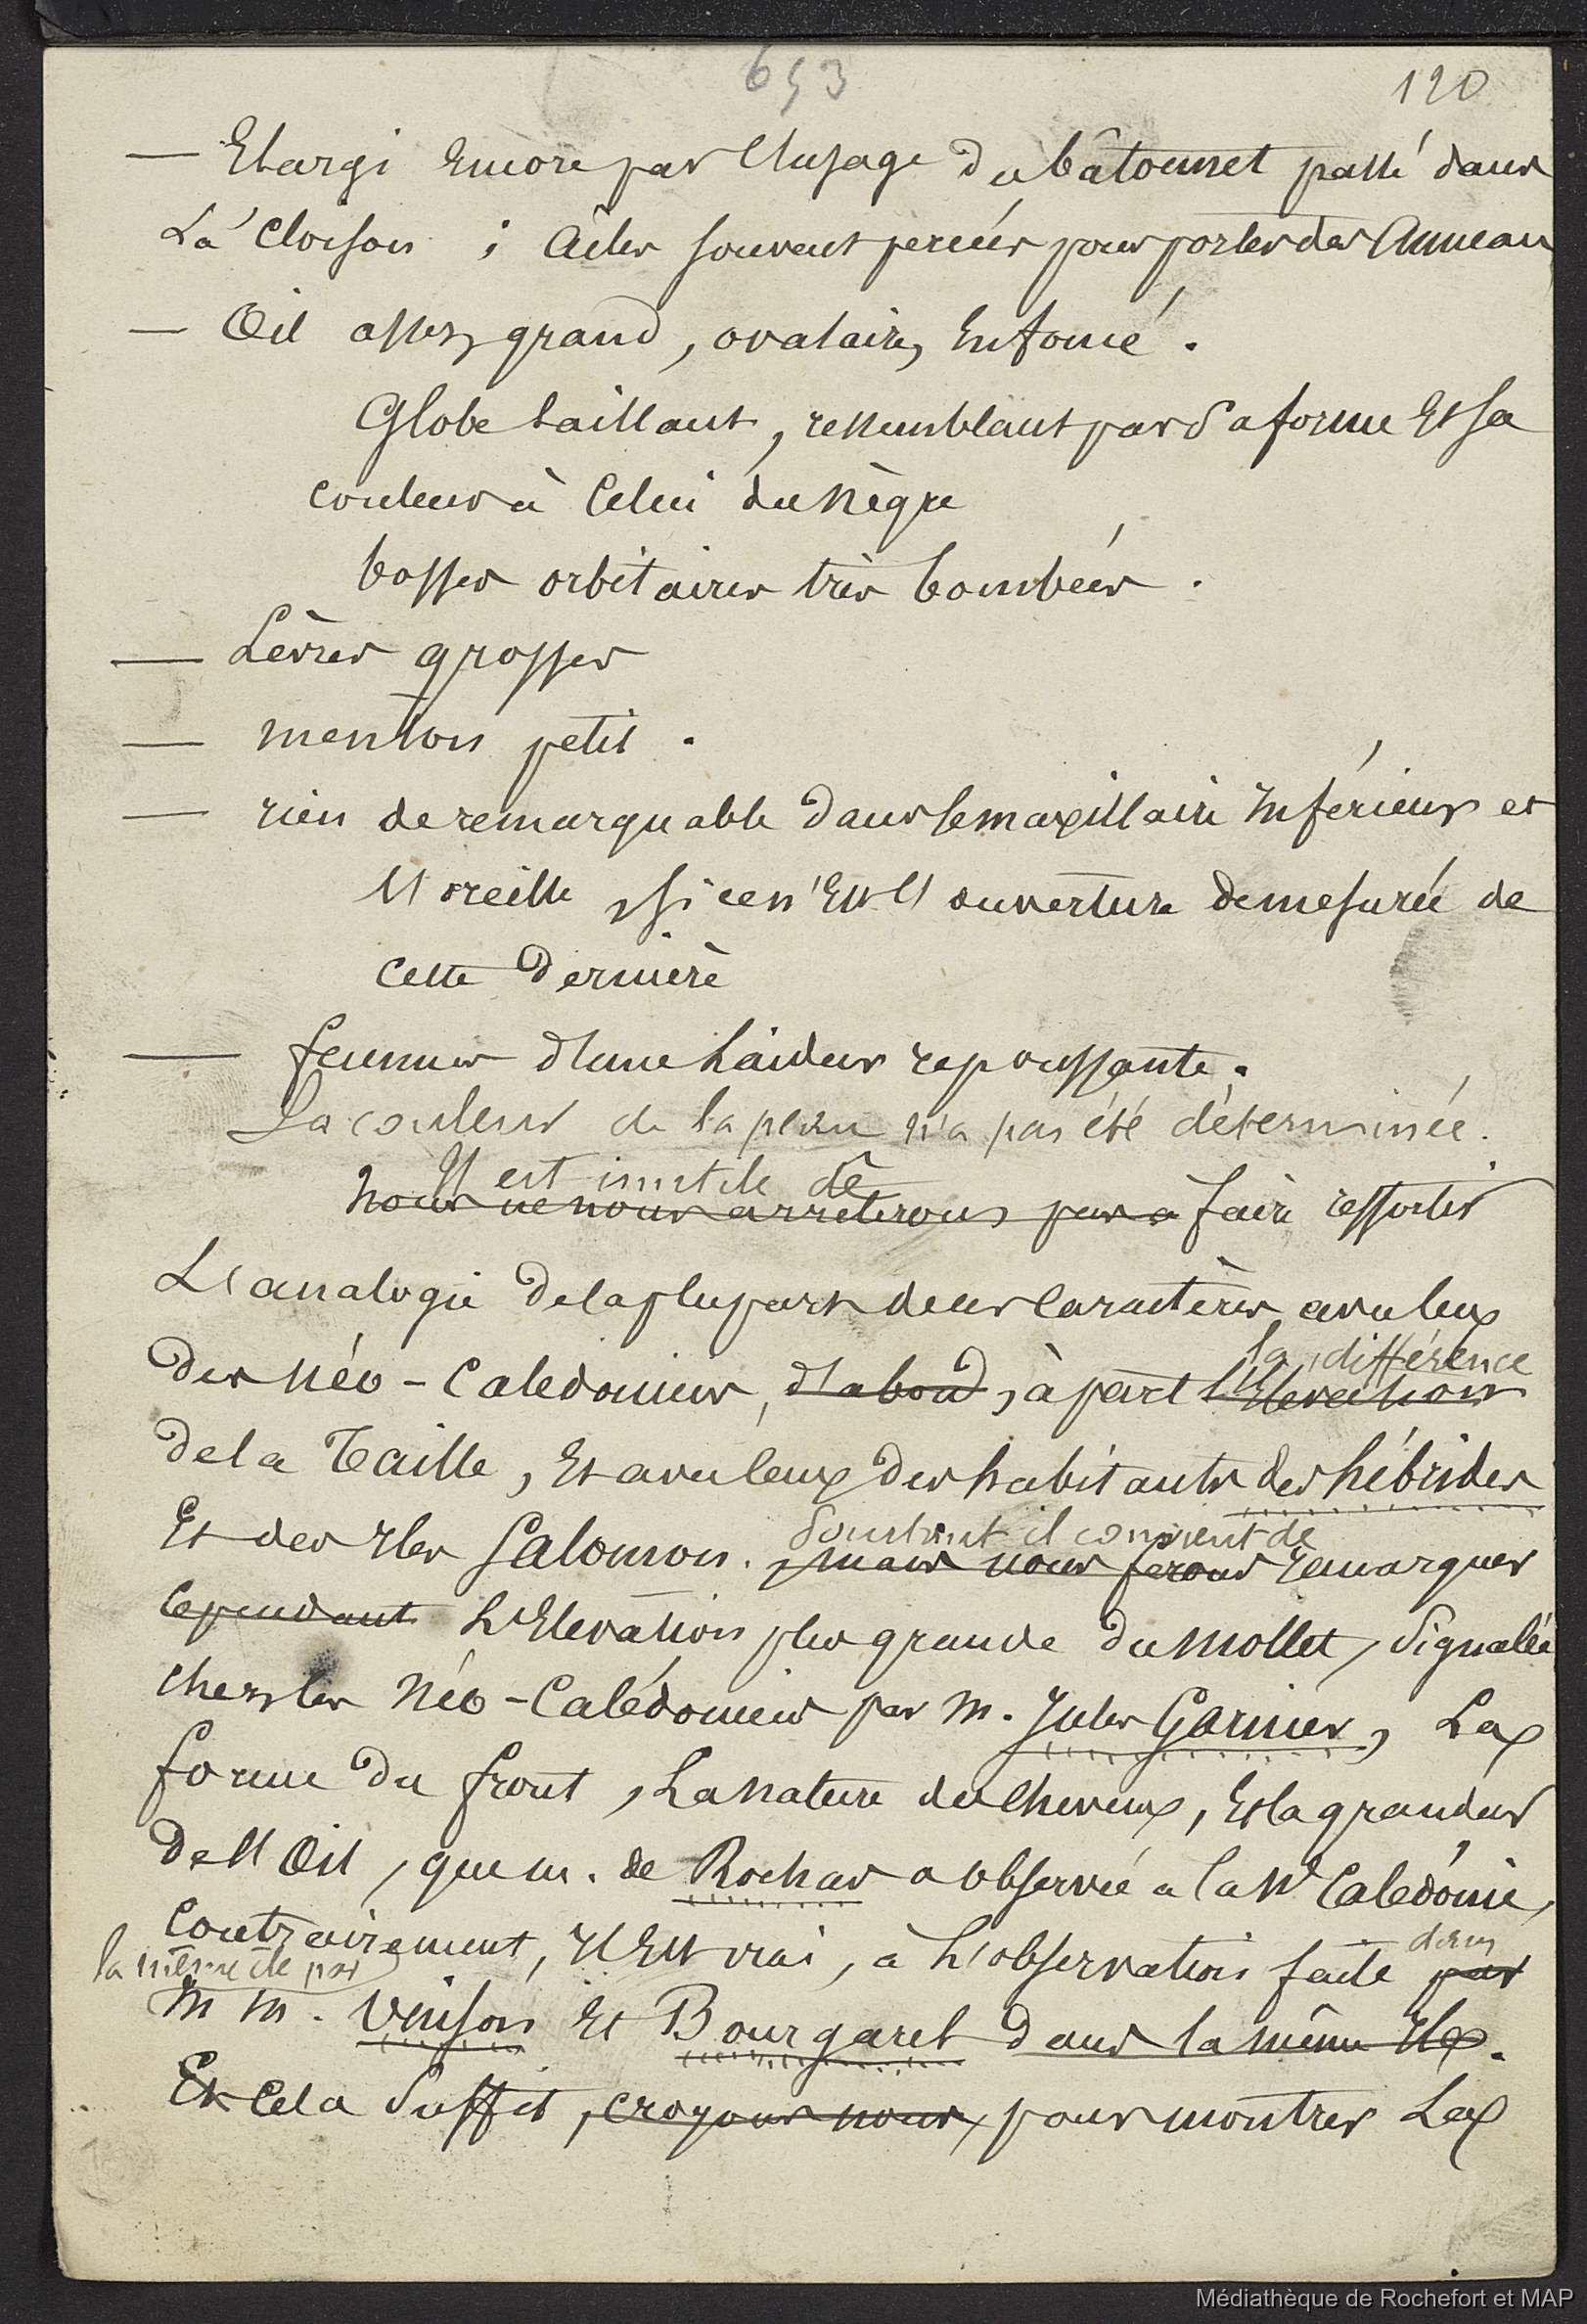 653
120
— Elargi Encore par l'usage du bâtonnet passé dans
La Cloison ; Ailes souvent percées pour porter des Anneau
— Œil assez grand, ovalaire, Enfoncé.
Globe saillant, ressemblant par sa forme Et sa
couleur à Celui du Nègre
bosses orbitaires très bombées.
— Lèvres grosses
— menton petit.
— rien de remarquable dans le maxillaire Inférieur et
l'oreille, si ce n'Est l'ouverture demesurée de
cette Dernière
— femmes d'une laideur repoussante.
La couleur de la peau n'a pas été déterminée.
Il est inutile de
Nous ne nous arrêterons pas a faire ressortir
L'analogie De la plupart de ces Caractères avec ceux
Des Néo-Calédoniens, d'abord, à part l'Elevation
la différence
De la Taille, Et avec ceux Des habitants des hébrides
Et des Iles Salomon.
Pourtant il convient de
mais nous ferons remarquer
Cependant L'Elevation plus grande Du Mollet, Signalée
chez les Néo-Calédonien par M. Jules Garnier, La
forme Du front, La Nature des Cheveux, Et la grandeur
De l'Œil, que m. de Rochas a observée a la Nle Calédonie,
Contrairement, Il Est vrai, à L'observation faite par
dans
la même île par
M M. Vinson Et Bourgarel Dans la même Ile.
Et Cela Suffit, croyons nous, pour montrer La
Médiathèque de Rochefort et MAP